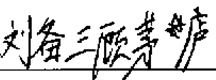 刘备三顾茅店